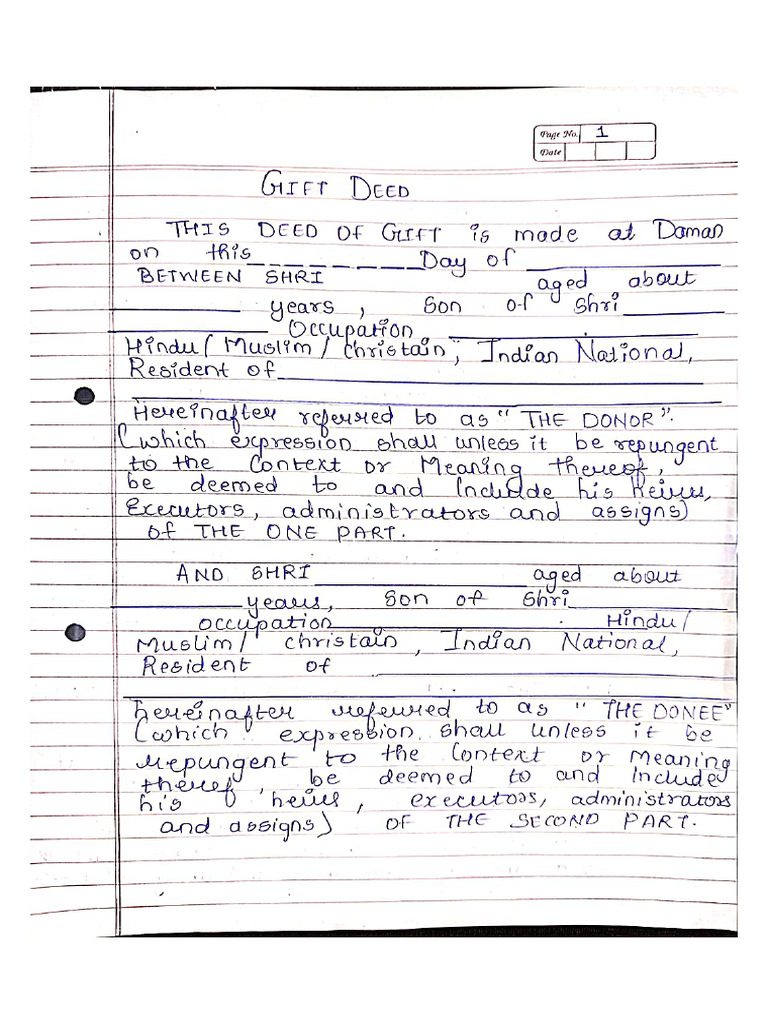 Page No. 1
Date
GIFT DEED
THIS DEED OF GIFT is made at Daman
on this_ _ _ _ _ _ _ _Day of ____________
BETWEEN SHRI aged about
________ years, Son of Shri______
__________ Occupation ______________
Hindu/ Muslim/ Christain, Indian National,
Resident of______________________
______________________________
Hereinafter referred to as "THE DONOR".
(which expression shall unless it be repungent
to the Context or Meaning thereof,
be deemed to and Include his Heirs,
Executors, administrators and assigns)
of THE ONE PART.
AND SHRI______________aged about
________years, Son of Shri________
occupation______________. Hindu/
Muslim/ Christain, Indian National,
Resident of
______________________________
hereinafter referred to as "THE DONEE"
(which expression shall unless it be
repungent to the Context or Meaning
theref, be deemed to and Include
his heirs, executors, administrators
and assigns) OF THE SECOND PART.